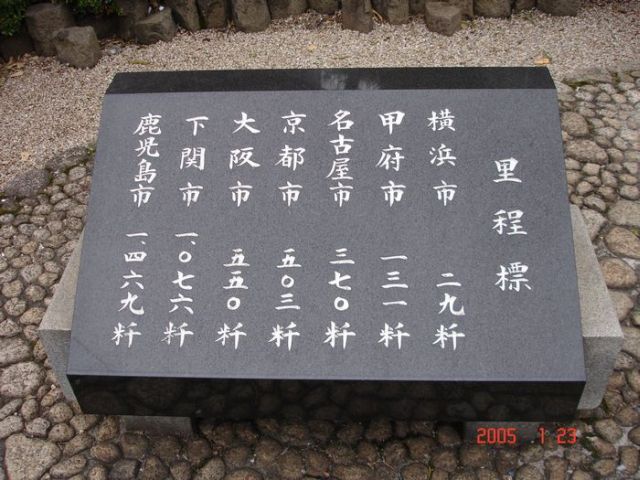 里程標
横浜市 二九粁
甲府市 一三一粁
名古屋市 三七〇粁
京都市 五〇三粁
大阪市 五五〇粁
下関市 一、〇七六粁
鹿児島市 一、四六九粁
2005 1 23